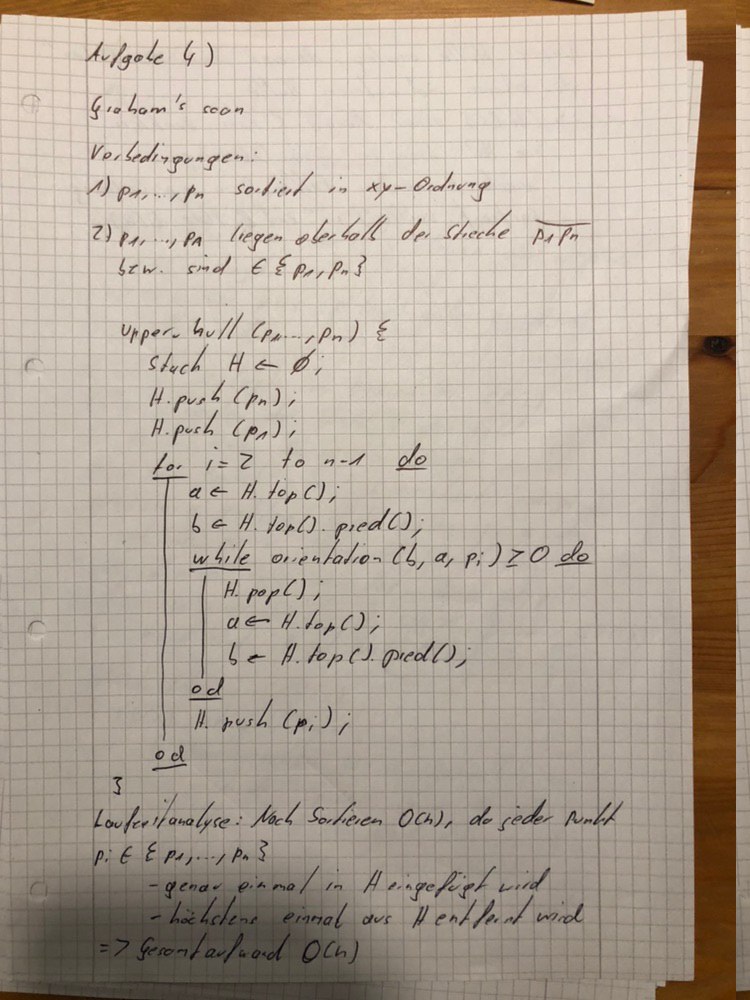 Aufgabe 4)
Graham's scan
Vorbedingungen:
1) p1,..., pn sortiert in xy-Ordnung
2) p1,..., pn liegen oberhalb der Strecke p1pn
bzw. sind ∈ {p1, pn}
upper-hull (p1..., pn) {
Stack H ← ∅;
H.push (pn);
H.push (p1);
for i=2 to n-1 do
a ← H.top();
b ← H.top().pred();
while orientation (b, a, pi) ≥ 0 do
H.pop();
a ← H.top();
b ← H.top().pred();
od
H.push (pi);
od
}
Laufzeitanalyse: Nach Sortieren O(n), da jeder Punkt
pi ∈ {p1,..., pn}
- genau einmal in H eingefügt wird
- höchstens einmal aus H entfernt wird
=> Gesamtaufwand O(n)